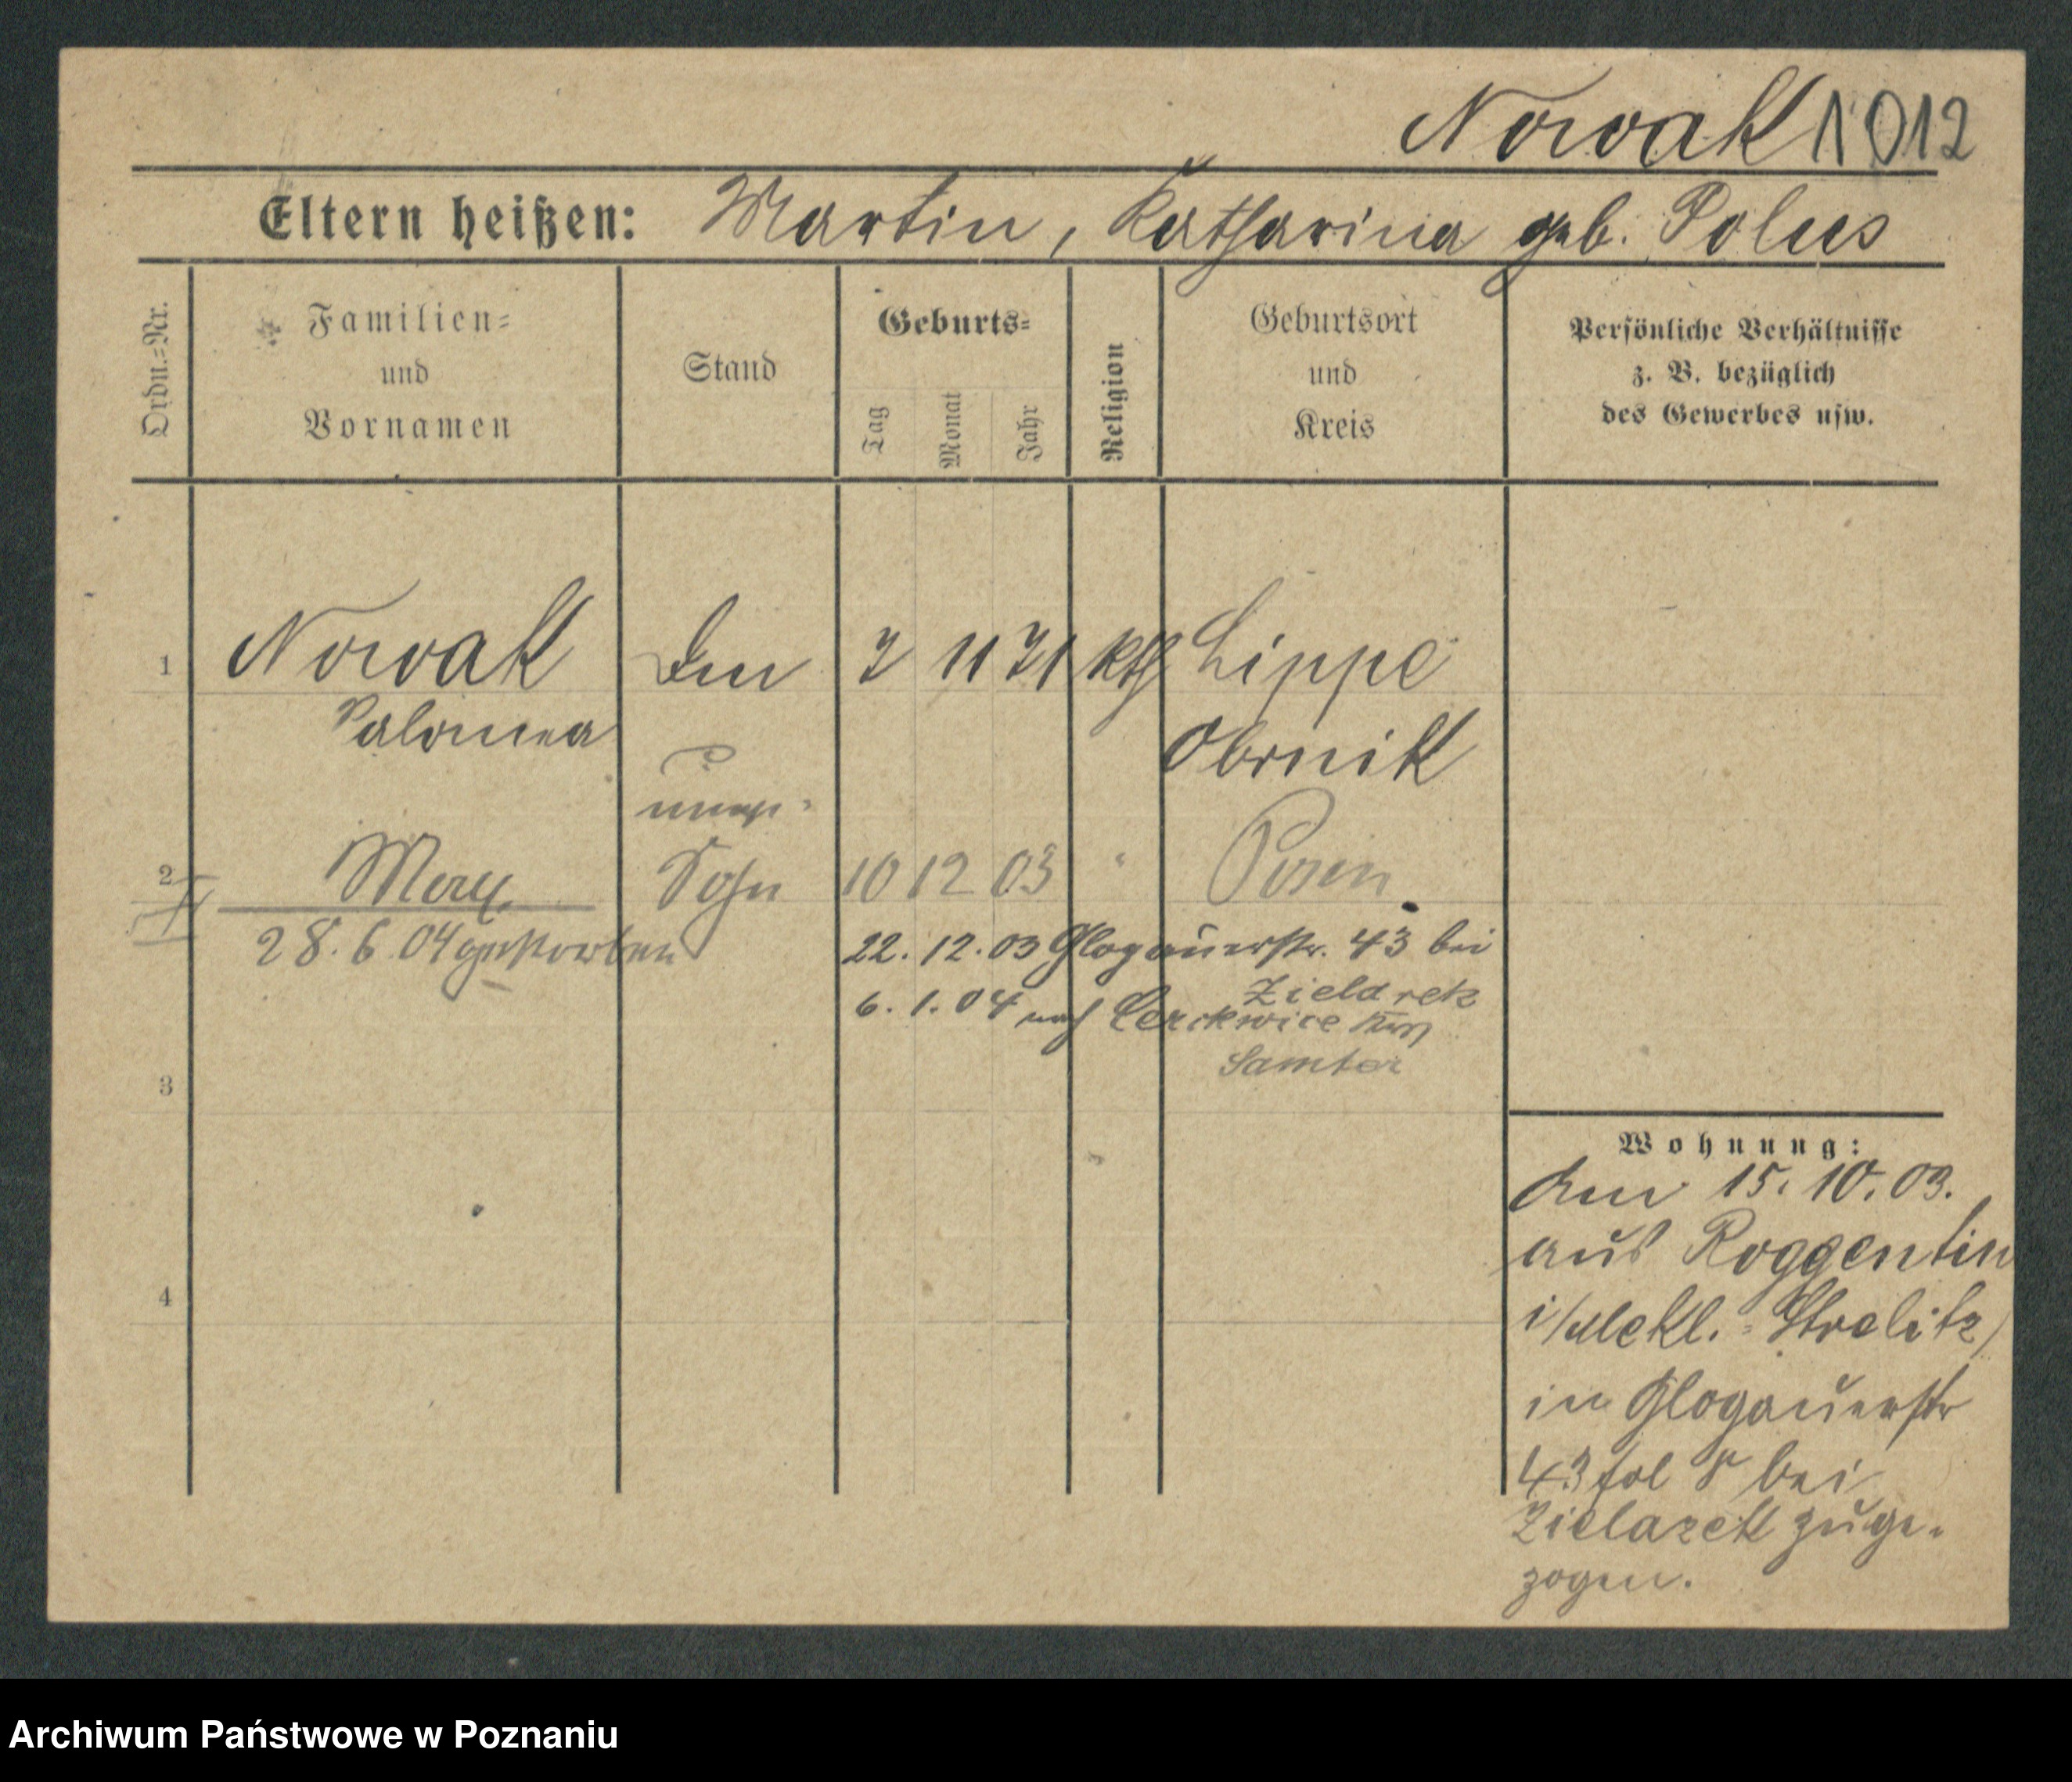 Nowak 1012
Eltern heißen: Martin, Katharina geb. Polus
Ordn.=Nr.
Familien=
und
Vornamen
Stand
Geburts=
Tag
Monat
Jahr
Religion
Geburtsort
und
Kreis
Persönliche Verhältnisse
z. B. bezüglich
des Gewerbes usw.
1 Nowak 11 71 kth Lippe
Salomea Obornik
2 Max. Sohn 10 12 03 " Posen
28. 6. 04 gestorben
22. 12. 03 Glogauerstr. 43 bei
6. 1. 04 nach Cerekwice Krs
Samter
3
4
Wohnung:
15. 10. 03.
aus Roggentin
i/Mekl.=Strelitz/
in Glogauerstr
43 bei
Zielazek zuge-
zogen.
Archiwum Państwowe w Poznaniu